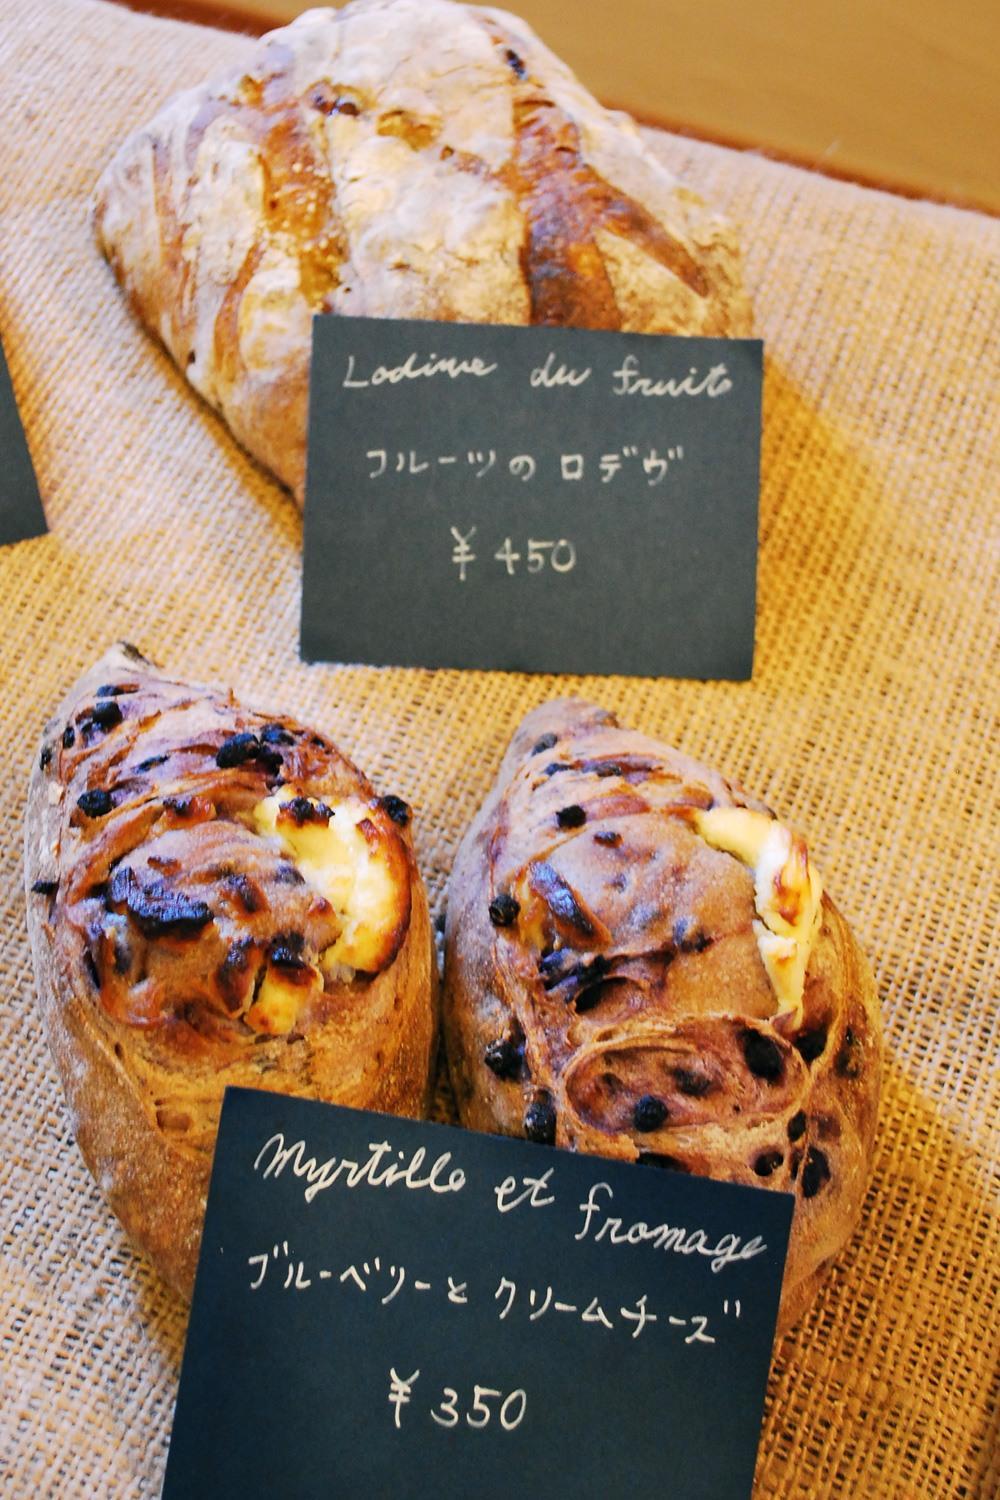 Lodime du fruits
フルーツの ロデヴ
¥450
Myrtille et fromage
ブルーベリーと クリームチーズ
¥350